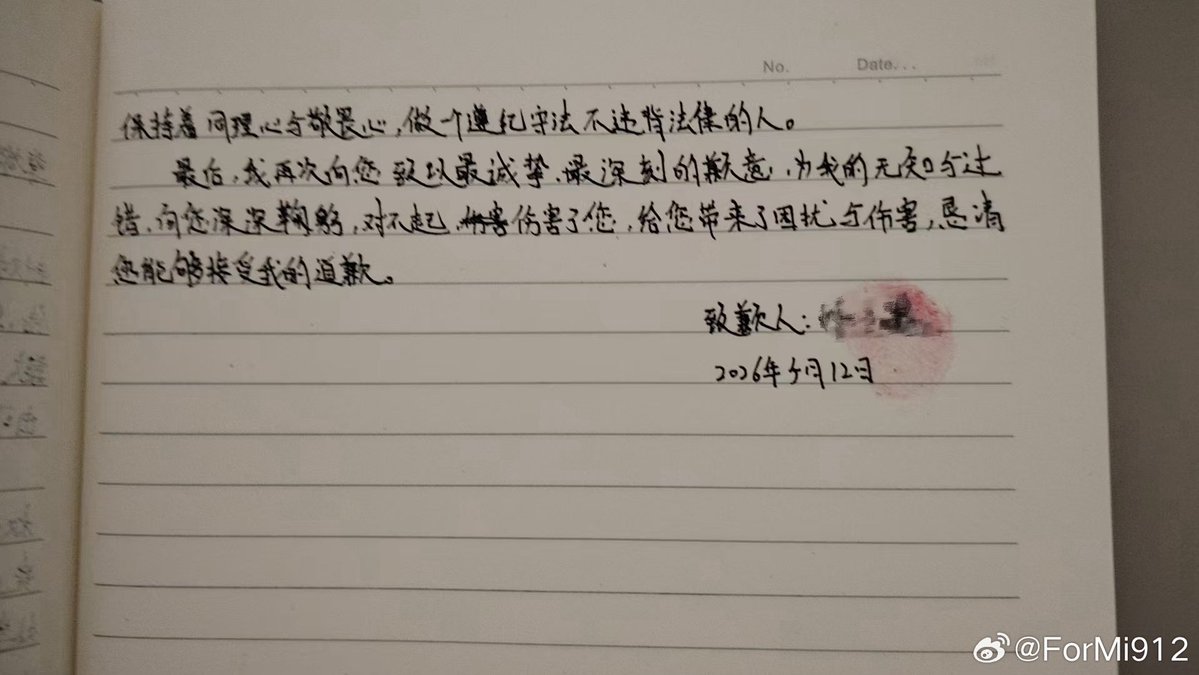 No.
Date...
保持着同理心与敬畏心,做个遵纪守法不违背法律的人。
最后,我再次向您致以最诚挚、最深刻的歉意,为我的无知与过
错,向您深深鞠躬,对不起,伤害伤害了您,给您带来了困扰与伤害,恳请
您能够接受我的道歉。
致歉人:
2026年5月12日
@ForMi912